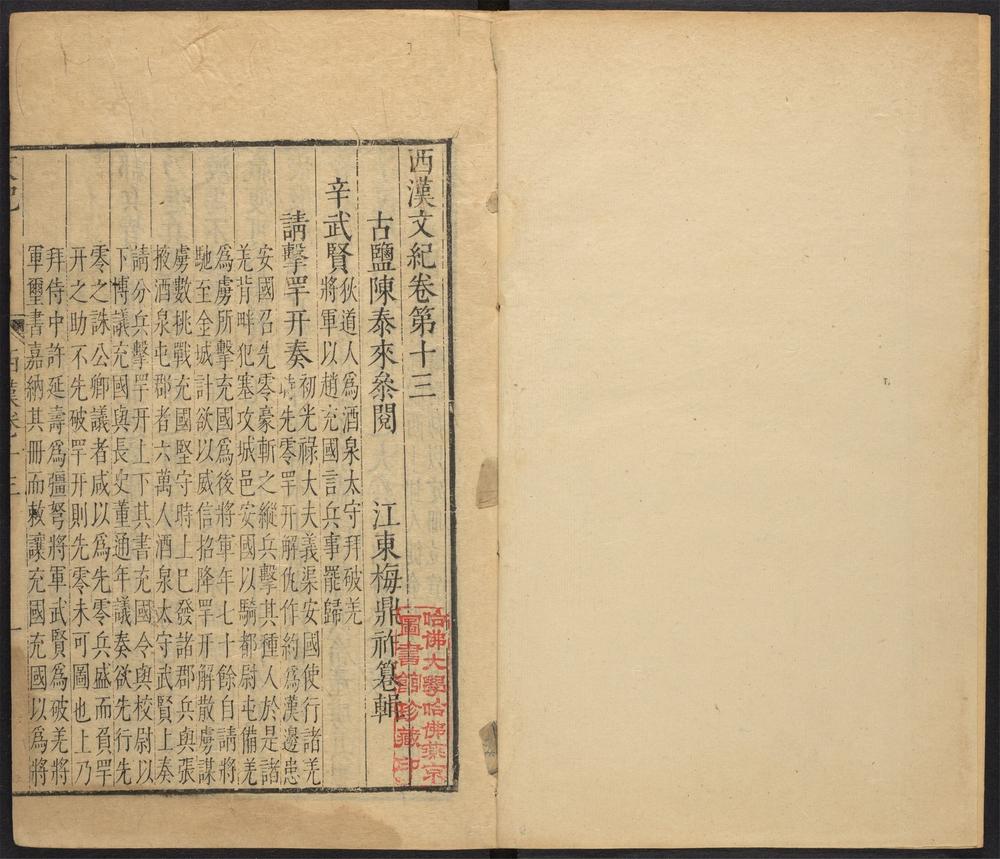 西漢文紀卷第十三
古鹽陳泰來叅閱 江東梅鼎祚纂輯
辛武賢 狄道人爲酒泉太守拜破羌
將軍以趙充國言兵事罷歸
請擊䍐开奏 初光祿大夫義渠安國使行諸羌
時先零䍐开解仇作約爲漢邊患
安國召先零豪斬之縱兵擊其種人於是諸
羌背畔犯塞攻城邑安國以騎都尉屯備羌
爲虜所擊充國爲後將軍年七十餘自請將
馳至金城計欲以威信招降䍐开解散虜謀
虜數挑戰充國堅守時上巳發諸郡兵與張
掖酒泉屯郡者六萬人酒泉太守武賢上奏
請分兵擊䍐开上下其書充國令與校尉以
下博議充國與長史董通年議奏欲先行先
零之誅公卿議者咸以爲先零兵盛而負䍐
开之助不先破䍐开則先零未可圖也上乃
拜侍中許延壽爲彊弩將軍武賢爲破羌將
軍璽書嘉納其冊而敕讓充國充國以爲將
西漢卷十三
一
哈佛大學哈佛燕京
圖書館珍藏印